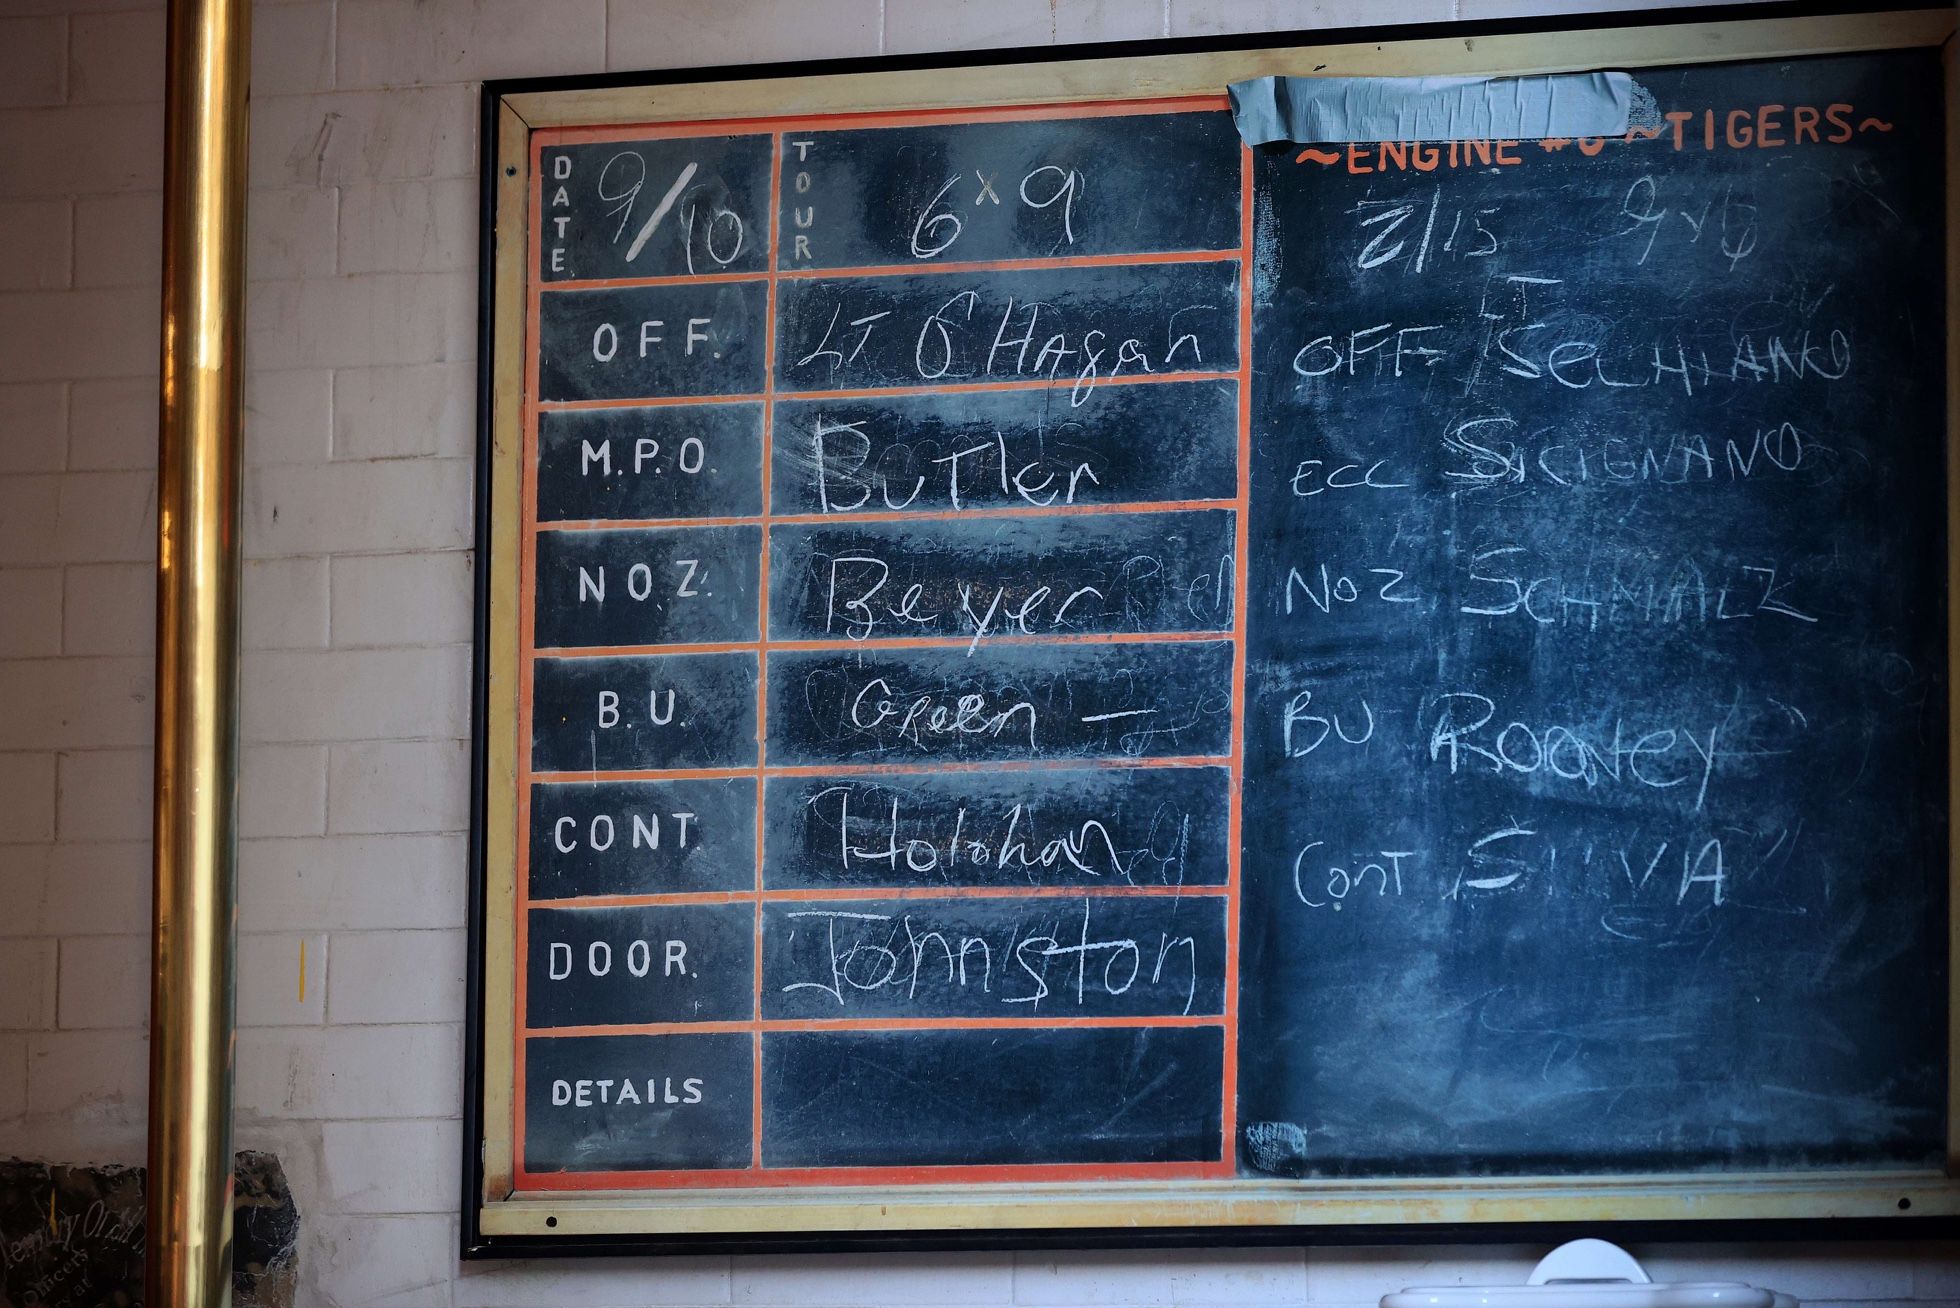 DATE 9/10 TOUR 6x9
OFF. LT O'Hagan
M.P.O. Butler
NOZ. Beyer
B.U. Green
CONT. Holohan
DOOR. Johnston
DETAILS
~ENGINE #6 ~TIGERS~
2/15 9x6
LT
OFF
ECC SICIGNANO
NOZ SCHMALZ
BU ROONEY
CONT SILVA
Officers